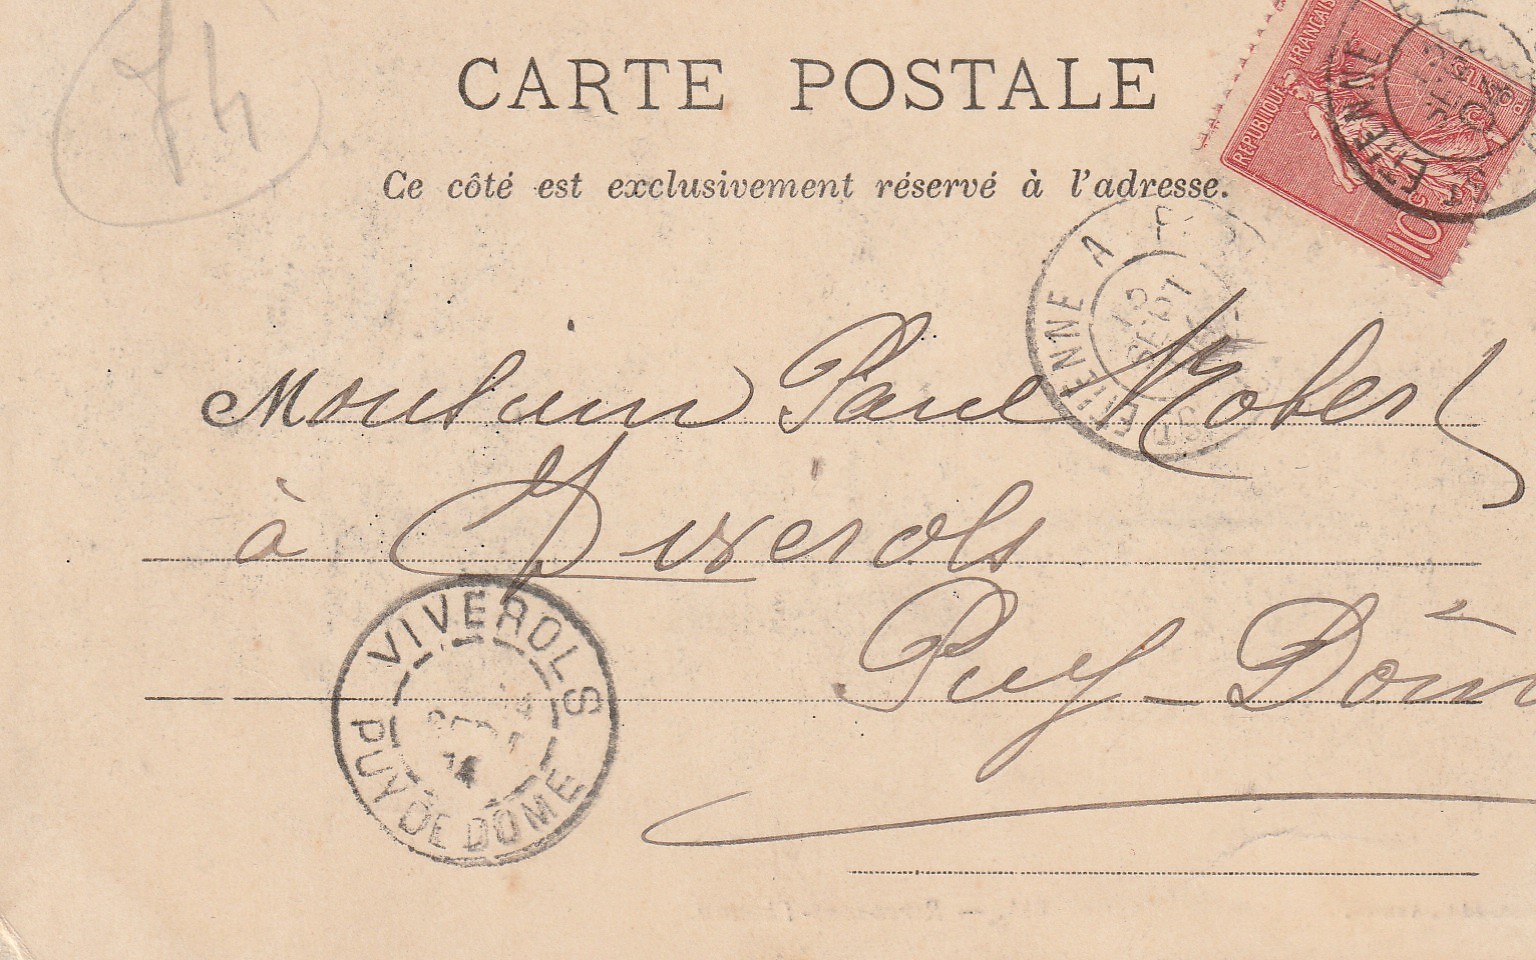 74
CARTE POSTALE
Ce côté est exclusivement réservé à l'adresse.
REPUBLIQUE FRANÇAISE
POSTES
10c
ETIENNE
ETIENNE A
12
SEPT
Monsieur Paul Robert
à Viverols
Puy-Dôm
VIVEROLS
SEPT
PUY DE DOME